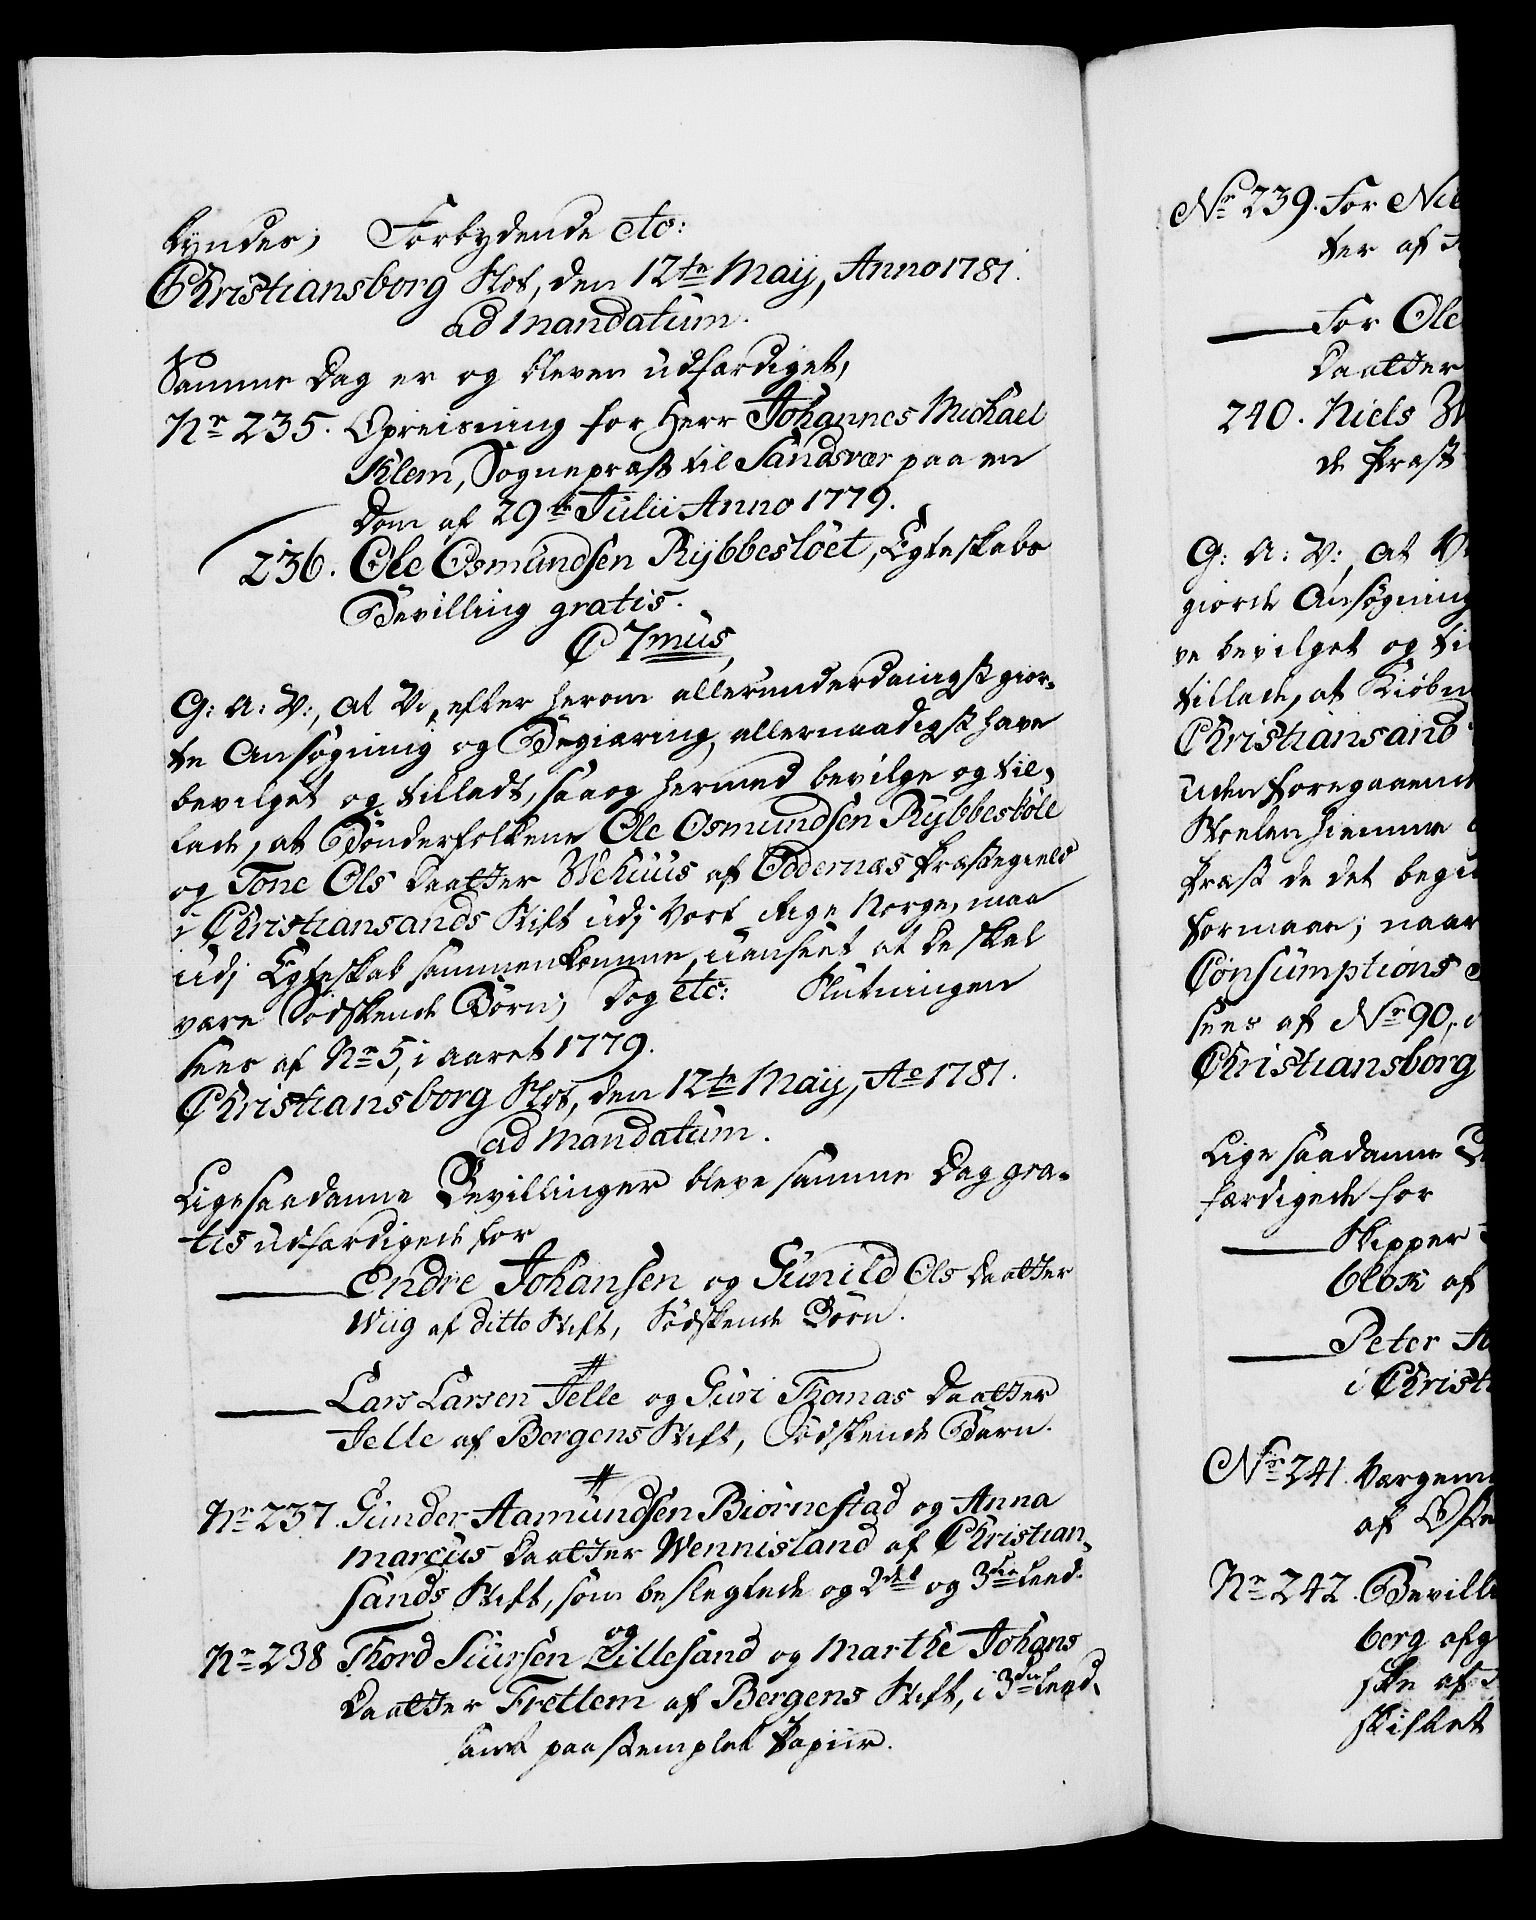 kyndes; Forbydende etc:
Christiansborg Slot, den 12te Maij, Anno 1781.
ad Mandatum.
Samme Dag er og bleven udfærdiget,
Nr 235. Opreisning for Herr Johannes Michael
Klem, Sognepræst til Sandsvær paa en
Dom af 29de Julii Anno 1779.
236. Ole Osmundsen Rybbesloet, Egteskabs
Bevilling gratis.
C 7mus,
G: A: V:, at Vi, efter herom allerunderdanigst gior-
te Ansøgning og Begiæring, allernaadigst have
bevilget og tilladt, saa og hermed bevilge og til-
lade, at Bønderfolkene Ole Osmundsen Rybbesloet
og Tone Ols Daatter Wehuus af Oddernæs Præstegield
i Christiansands Stift udj Vort Rige Norge, maa
udj Egteskab sammenkomme, uanseet at De skal
være Sødskende Børn; Dog etc: Slutningen
sees af Nr 5, i aaret 1779.
Christiansborg Slot, den 12te Maij, Ao 1781.
ad Mandatum.
Ligesaadanne Bevillinger bleve samme Dag gra-
tis udfærdigede for
Endre Johansen og Gunild Ols Daatter
Wiig af ditto Stift, Sødskende Børn.
#
Lars Larsen Jelle og Guri Thomas Daatter
Jelle af Bergens Stift, Sødskende Børn.
#
Nr 237. Gunder Aamundsen Biørnestad og Anna
Marcus Daatter Wennisland af Christian-
sands Stift, som beslegtede og 2det og 3die Leed.
og
Nr 238 Thord Siursen Lillesand og Marthe Johans
Daatter Fretlem af Bergens Stift, i 3die Leed,
samt paa stemplet Papiir.
Nr 239. For Nie
ter af
For Ole
Daatter
240. Niels
de Præst
G: A: V:, at V
giorde Ansøgning
ve bevilget og ti
tillade, at Kiøbm
Christiansand
uden foregaaende
Stuelen hiemme
Præst de det begi
formaae; naar
Consumptions
sees af Nr 90,
Christiansborg
Lige saadanne B
færdigede for
Skipper
Blok af
Peter
i Christi
Nr 241. Værgem
af
Nr 242. Bevill
berg afg
ske af
skiftet